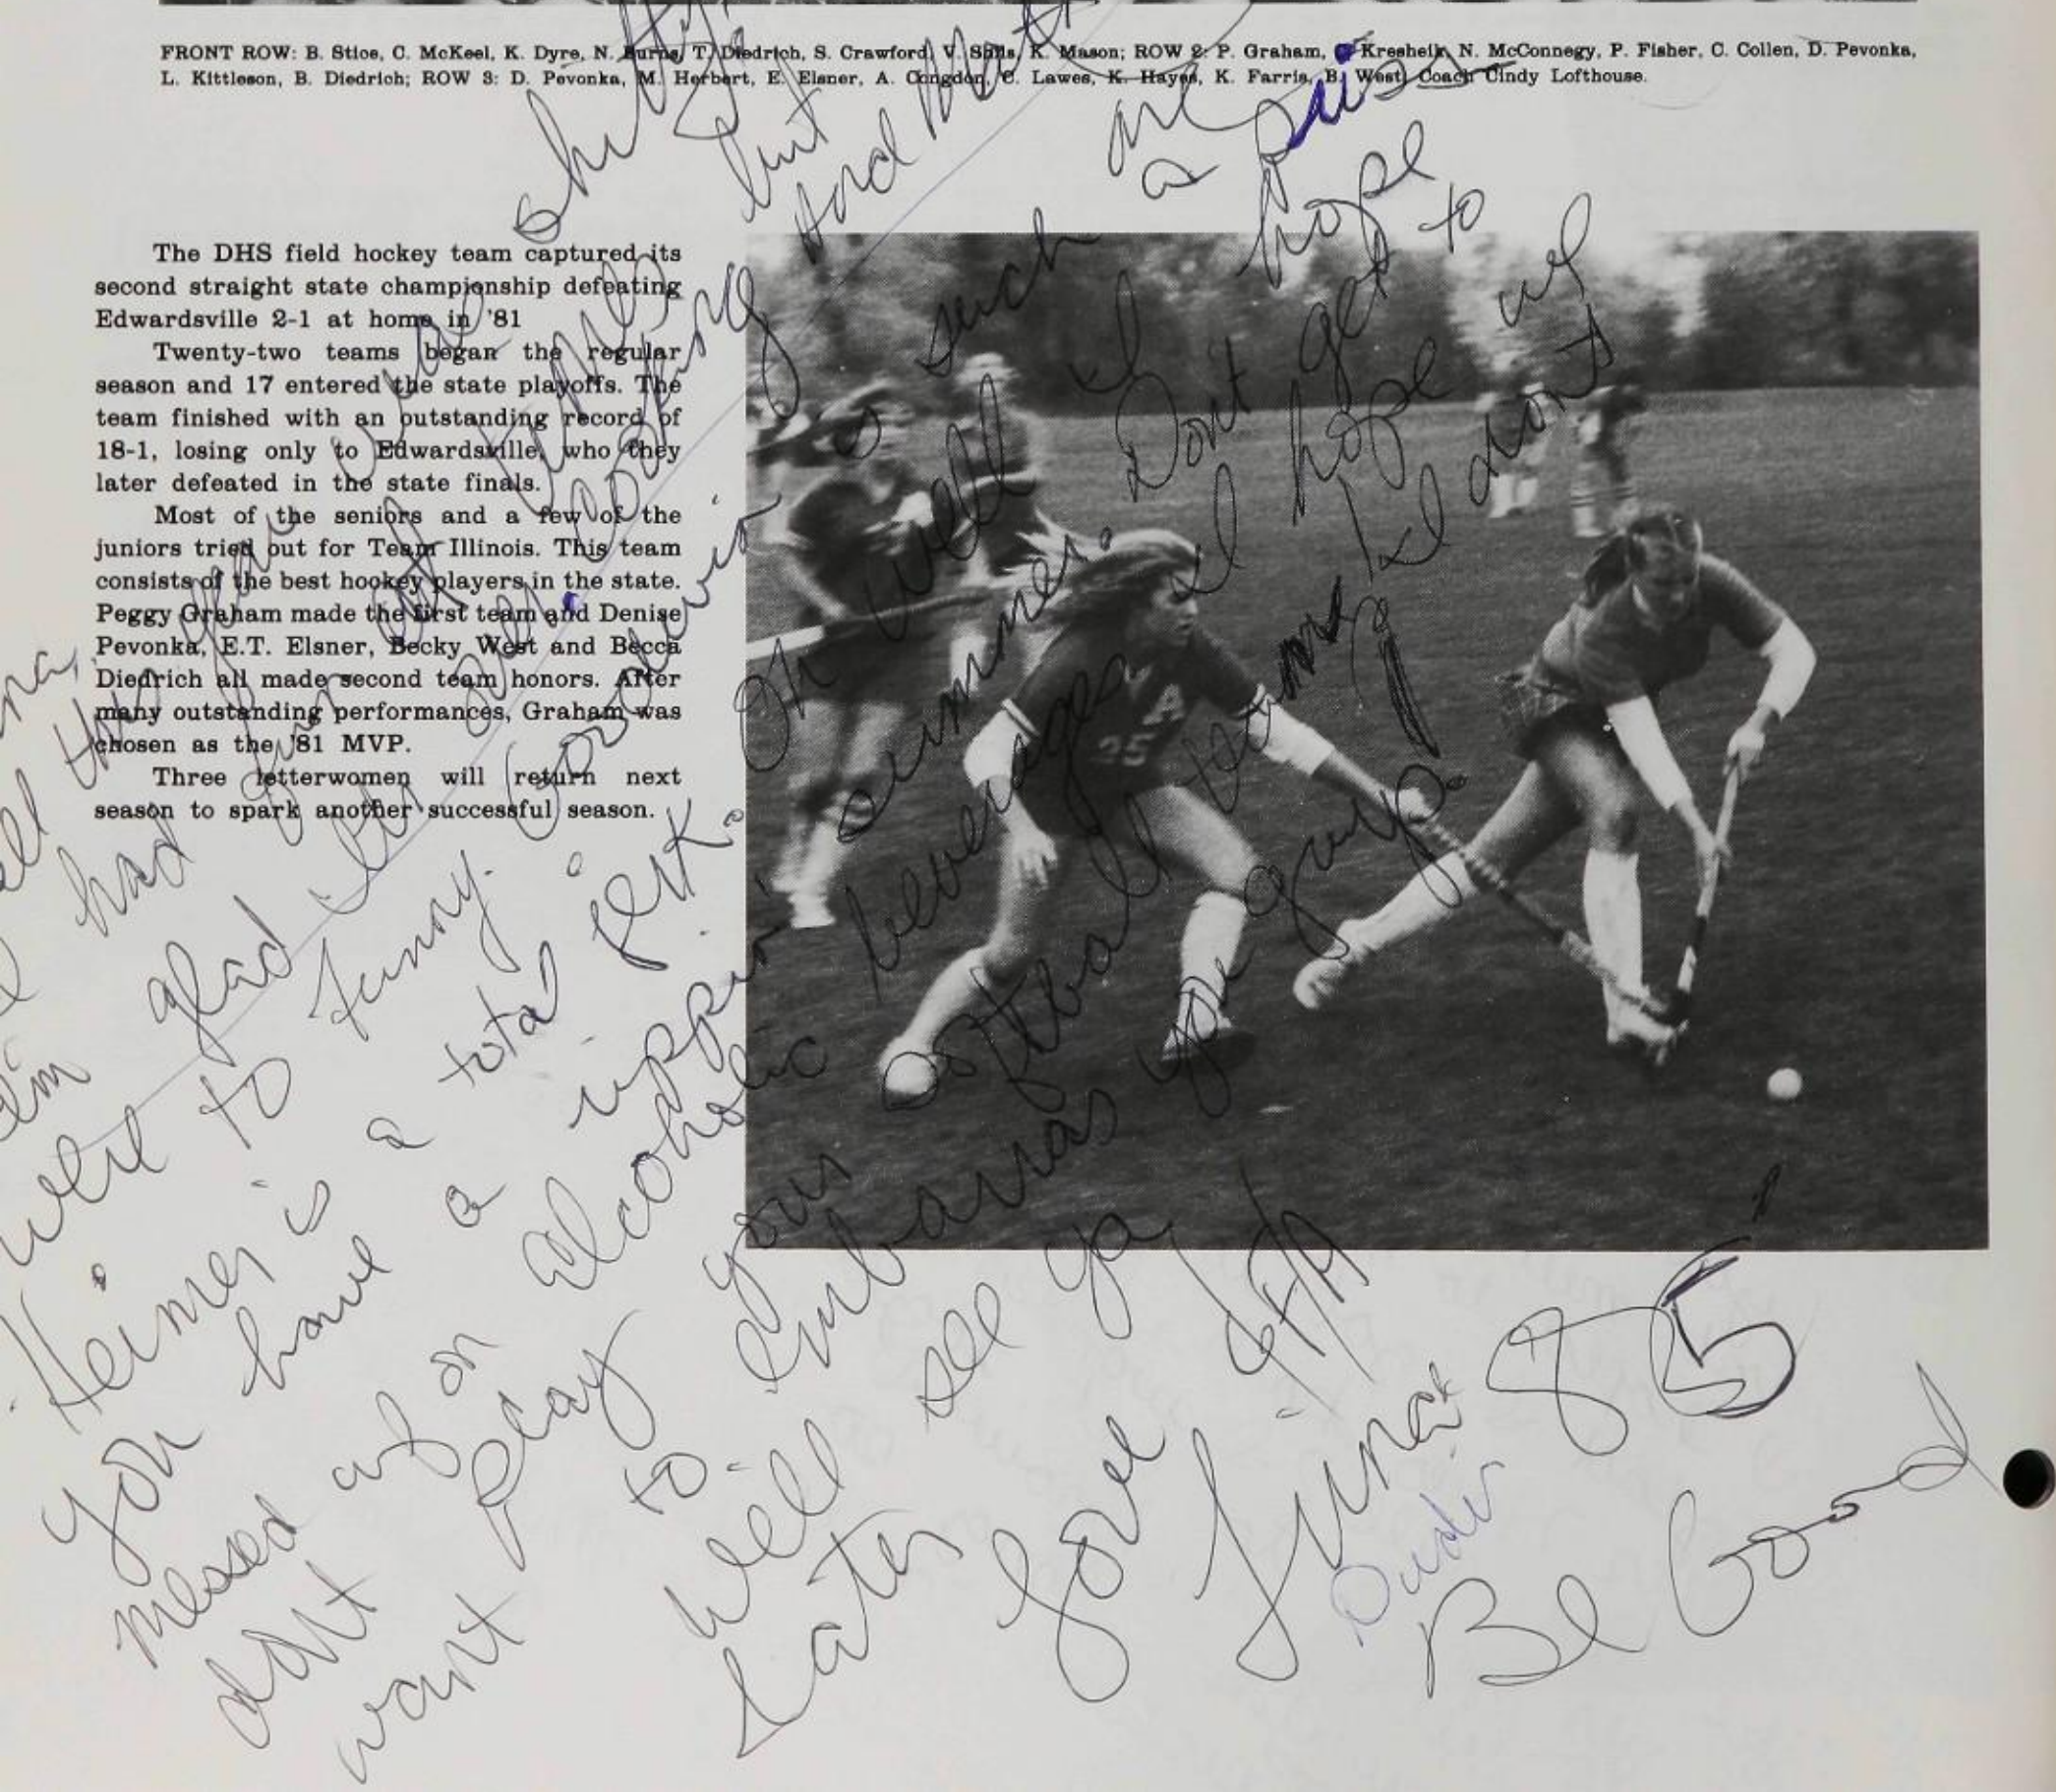 FRONT ROW: B. Stice, C. McKeel, K. Dyre, N. Burns, T. Diedrich, S. Crawford, V. Sprls, K. Mason; ROW 2: P. Graham, Kresheik, N. McConnegy, P. Fisher, C. Collen, D. Pevonka,
L. Kittleson, B. Diedrich; ROW 3: D. Pevonka, M. Herbert, E. Elsner, A. Congdon, C. Lawes, K. Hayes, K. Farris, B. West, Coach Cindy Lofthouse.
The DHS field hockey team captured its
second straight state championship defeating
Edwardsville 2-1 at home in '81
Twenty-two teams began the regular
season and 17 entered the state playoffs. The
team finished with an outstanding record of
18-1, losing only to Edwardsville, who they
later defeated in the state finals.
Most of the seniors and a few of the
juniors tried out for Team Illinois. This team
consists of the best hockey players in the state.
Peggy Graham made the first team and Denise
Pevonka, E.T. Elsner, Becky West and Becca
Diedrich all made second team honors. After
many outstanding performances, Graham was
chosen as the '81 MVP.
Three letterwomen will return next
season to spark another successful season.
this year shitty
had fun at times but
glad its over. Looking and
were to funny. Goodwin is such a
Heimer is a total jerk. Oh well I hope
you have a rippin' summer. Dont get to
messed up on alcoholic beverages I hope we
dont play your softball team I dont
want to embarras you guys.
Well see ya
Later
Love
85
Be Good
A
25